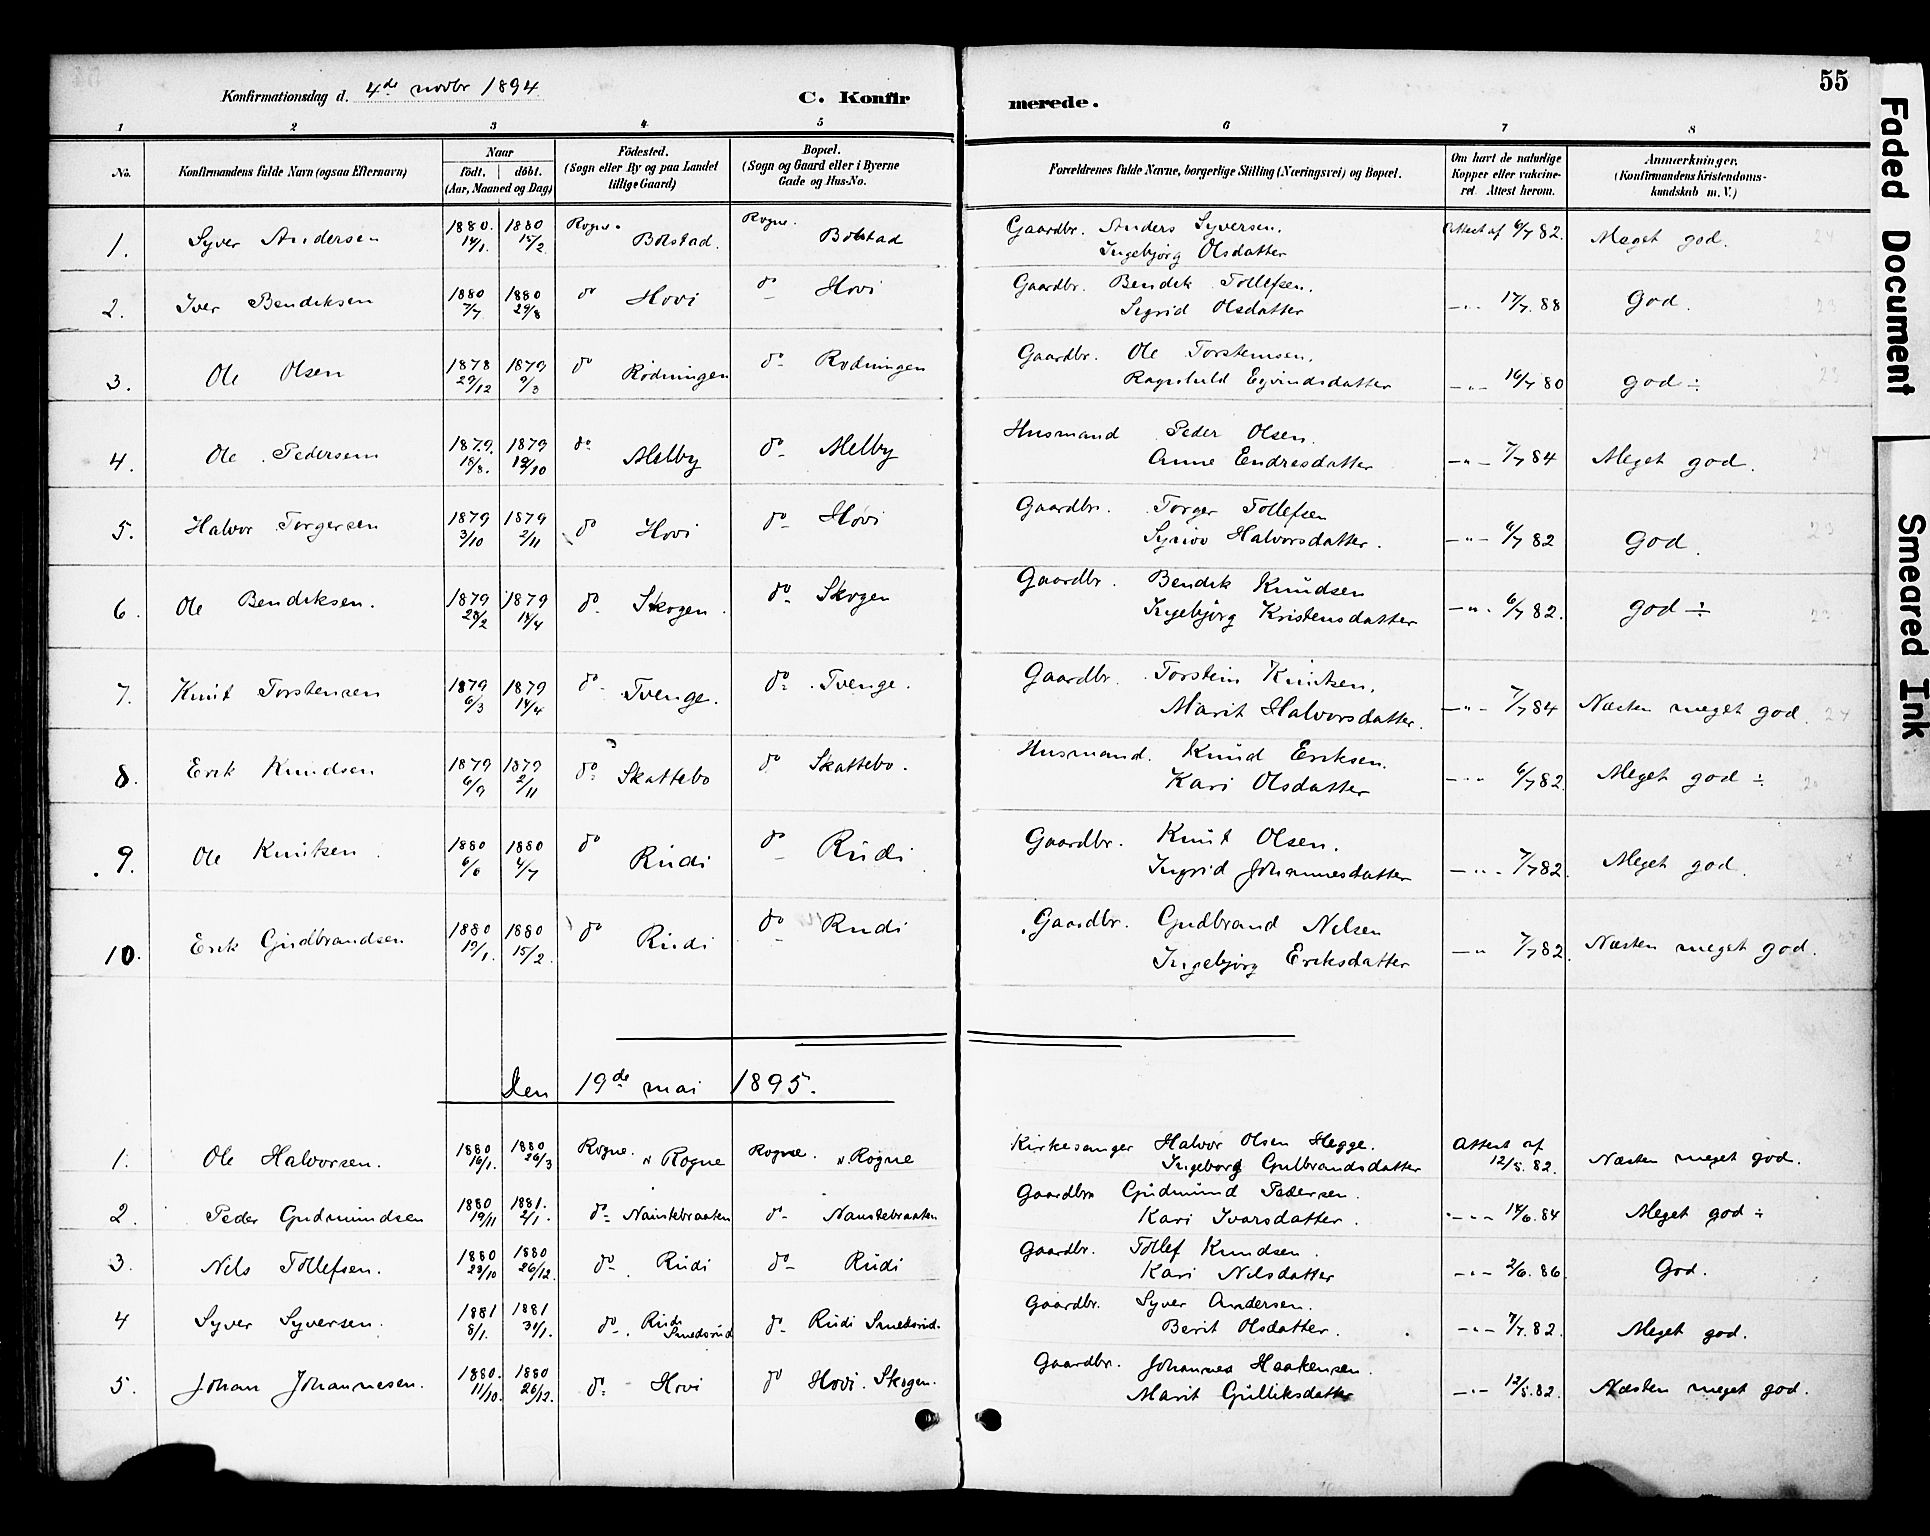 55
Faded Document
Smeared Ink
Konfirmationsdag d. 4de novbr 1894
C. Konfir merede.
1 2 3 4 5 6 7 8
No. Konfirmandens fulde Navn (ogsaa Efternavn) Naar födt. döbt. (Aar, Maaned og Dag) Födested. (Sogn eller By og paa Landet tillige Gaard) Bopæl. (Sogn og Gaard eller i Byerne Gade og Hus-No. Forældrenes fulde Navne, borgerlige Stilling (Næringsvei) og Bopæl. Om havt de naturlige Kopper eller vakcineret. Attest herom. Anmærkninger. (Konfirmandens Kristendomskundskab m. V.)
1. Syver Andersen 1880. 14/1. 1880 15/2 Rogne. Bolstad. Rogne. Bolstad Gaardbr. Anders Syversen. Attest af 6/7 82. Meget god.
Ingebjørg Olsdatter
2. Iver Bendiksen 1880 7/7 1880 29/8 do Hovi do Hovi Gaardbr. Bendik Tollefsen. 17/7. 88 God.
Sigrid Olsdatter
3. Ole Olsen 1878 29/12 1879 9/3 do Rodningen do Rodningen Gaardbr. Ole Torstensen. 16/7 80 god ÷
Ragnhild Eyvindsdatter
4. Ole Pedersen 1879. 18/8. 1879 19/10 do Melby do Melby Husmand Peder Olsen. 7/7 84 Meget god.
Anne Endresdatter
5. Halvor Torgersen 1879 3/10 1879 2/11 do Hovi do Hovi Gaardbr. Torger Tollefsen 6/7 82 God.
Halvorsdatter.
6. Ole Bendiksen. 1879 28/2 1879 14/4 do Skogen. do Skogen Gaardbr. Bendik Knudsen 6/7 82. god ÷
Ingebjørg Kristensdatter
7. Knut Torstensen 1879 6/3 1879 14/4 do Tvenge. do Tvenge. Gaardbr. Torstein Knutsen. 7/7 84 Næsten meget god.
Marit Halvorsdatter.
8. Erik Knudsen 1879 6/9 1879 2/11 do Skattebo do Skattebo. Husmand. Knud Eriksen. 6/7 82. Meget god ÷
Kari Olsdatter
9. Ole Knutsen 1880 6/6 1880 4/7 do Rudi do Rudi Gaardbr. Knut Olsen. 7/7 82. Meget god.
Ingrid Johannesdatter
10. Erik Gudbrandsen 1880 19/1. 1880 15/2. do Rudi do Rudi Gaardbr. Gudbrand Nilsen 7/7 82. Næsten meget god.
Ingebjørg Eriksdatter
Den 19de mai 1895.
1. Ole Halvorsen. 1880 16/1. 1880 26/3 Rogne. " Rogne Rogne. " Rogne Kirkesanger Halvor Olsen Hegge. Attest af 12/5. 82. Næsten meget god.
Ingeborg Gulbrandsdatter
2. Peder Gudmundsen 1880 19/11 1881. 2/1. do Naustebraaten do Naustebraaten Gaardbr Gudmund Pedersen. 14/6. 84 Meget god ÷
Kari Ivarsdatter.
3. Nils Tollefsen. 1880 23/10 1880 26/12. do Rudi do Rudi Gaardbr. Tollef Knudsen. 2/6. 86. God.
Kari Nilsdatter
4 Syver Syversen. 1881 8/1. 1881 30/1. do Rudi Smedsrud do Rudi Smedsrud. Gaardbr. Syver Andersen. 7/7. 82. Meget god.
Berit Olsdatter.
5. Johan Johannesen. 1880. 11/10. 1880 26/12. do Hovi do Hovi. Skogen. Gaardbr. Johannes Haakensen. 12/5. 82. Næsten meget god.
Marit Gulliksdatter